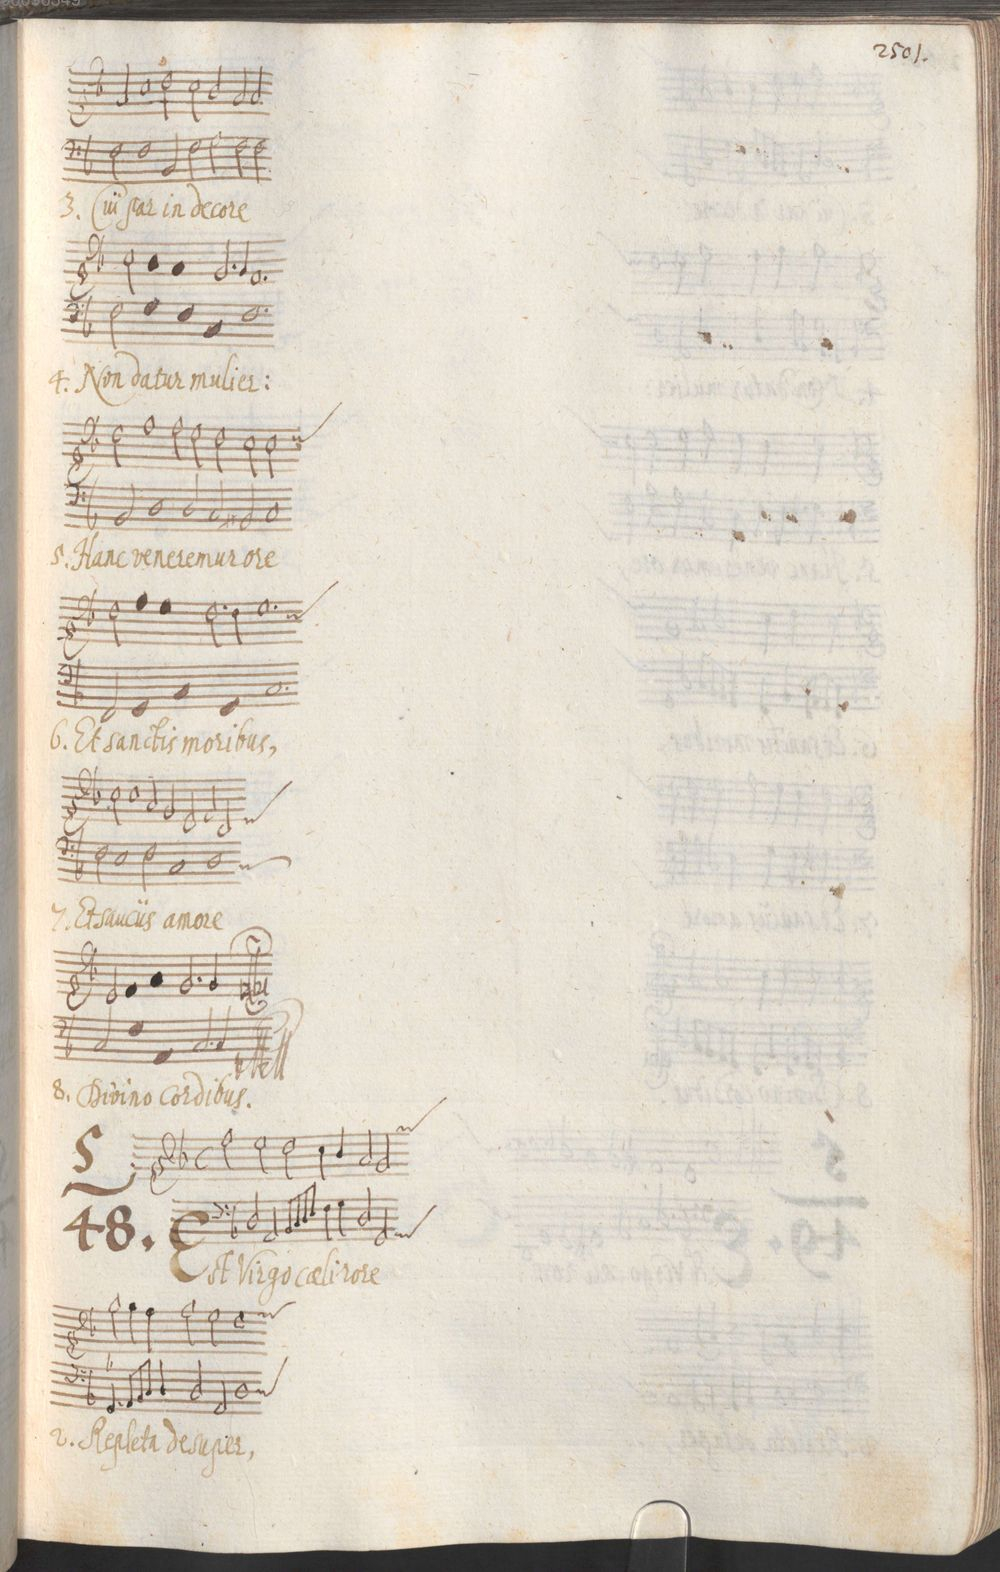 2501.
3. Cui par in decore
4. Non datur mulier:
5. Hanc veneremur ore
6. Et sanctis moribus,
7. Et saucijs amore
8. Divino cordibus.
S
48. Est Virgo cœli rore
2. Repleta desuper,